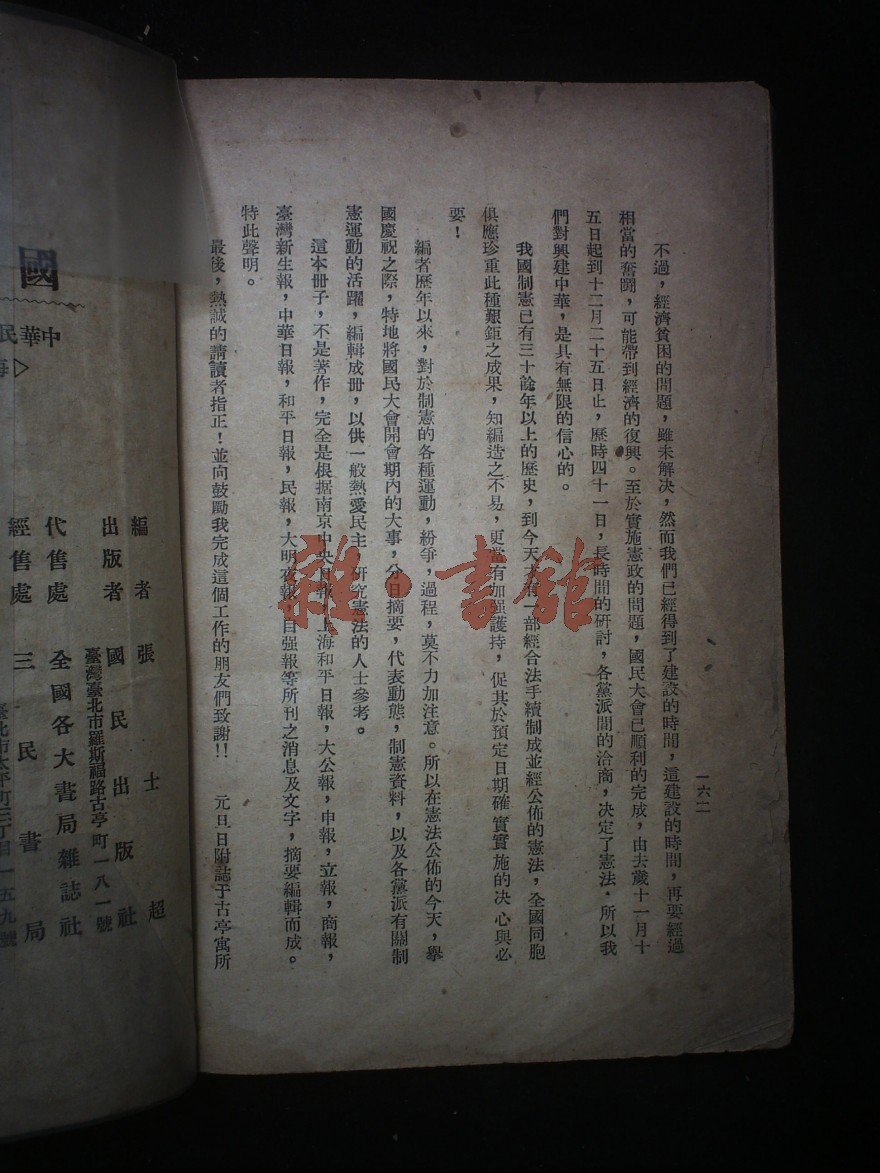 一六二
不過，經濟貧困的問題，雖未解决，然而我們已經得到了建設的時間，這建設的時間，再要經過
相當的奮鬪，可能帶到經濟的復興。至於實施憲政的問題，國民大會已順利的完成，由去歲十一月十
五日起到十二月二十五日止，歷時四十一日，長時間的研討，各黨派間的洽商，决定了憲法．所以我
們對興建中華，是具有無限的信心的。
我國制憲已有三十餘年以上的歷史，到今天才有一部經合法手續制成並經公佈的憲法，全國同胞
俱應珍重此種艱鉅之成果，知編造之不易，更當有加强護持，促其於預定日期確實實施的决心與必
要！
編者歷年以來，對於制憲的各種運動，紛爭，過程，莫不力加注意。所以在憲法公佈的今天，舉
國慶祝之際，特地將國民大會開會期內的大事，分日摘要，代表動態，制憲資料，以及各黨派有關制
憲運動的活躍，編輯成册，以供一般熱愛民主 研究憲法的人士參考。
這本冊子，不是著作，完全是根据南京中央日報，上海和平日報，大公報，申報，立報，商報，
臺灣新生報，中華日報，和平日報，民報，大明夜報，自强報等所刊之消息及文字，摘要編輯而成。
特此聲明。
最後，熱誠的請讀者指正！並向鼓勵我完成這個工作的朋友們致謝!! 元旦日附誌于古亭寓所
雜·書館
編者 張士超
出版者 國民出版社
臺灣臺北市羅斯福路古亭町一八一號
代售處 全國各大書局雜誌社
經售處 三民書局
臺北市太平町三丁目一五九號
國
中華民